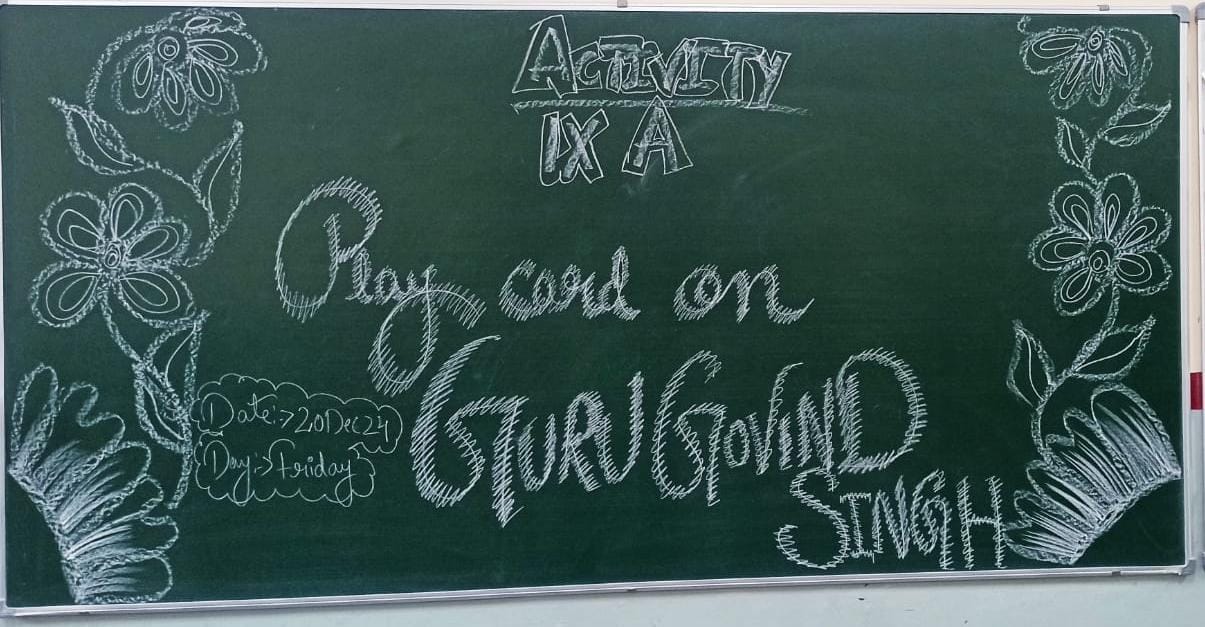 ACTIVITY
IX A
Play card on
GURU GOVIND
SINGH
Date:> 20Dec24
Day:> Friday